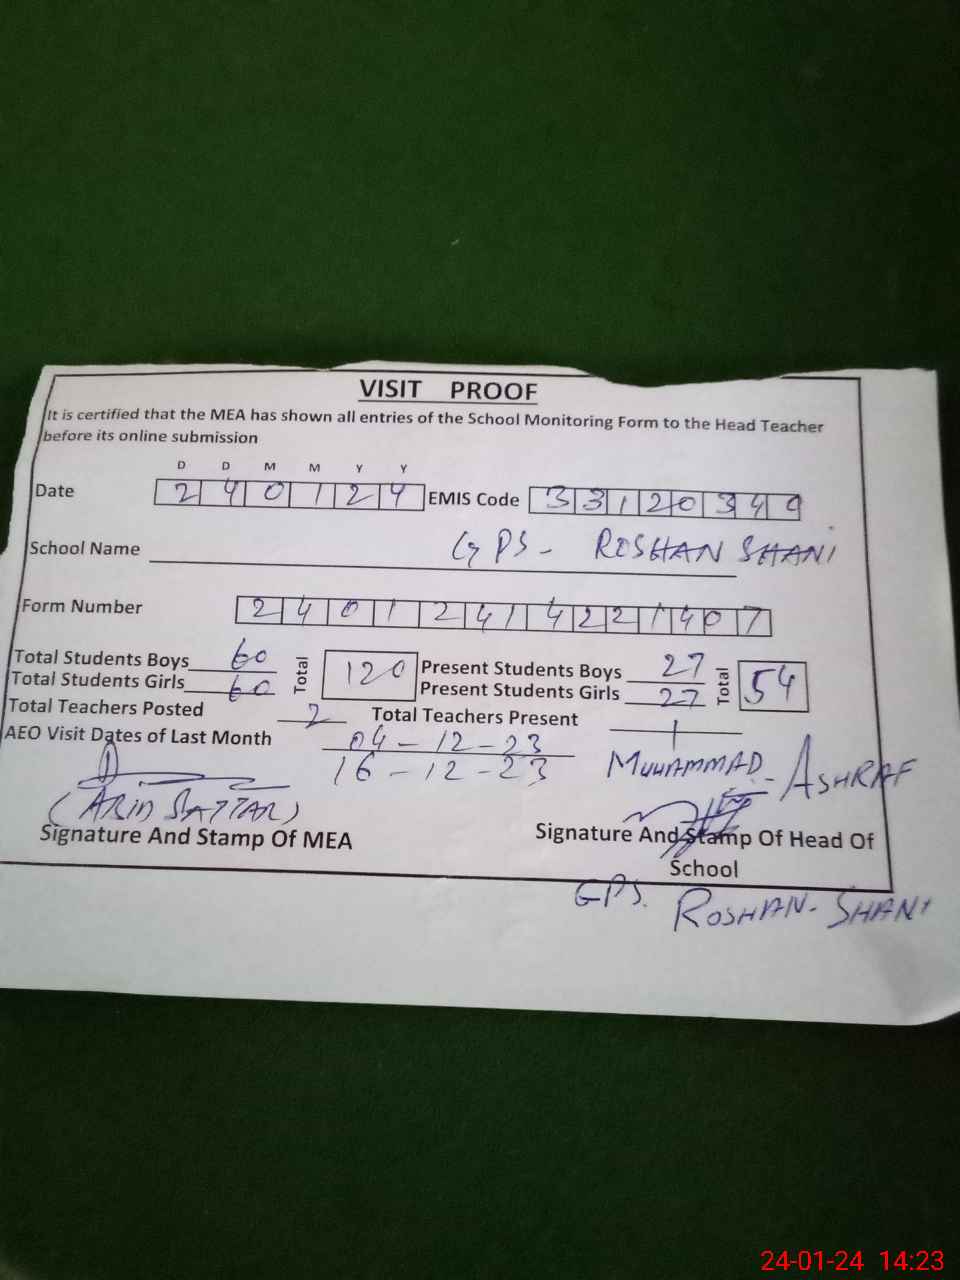 VISIT PROOF
It is certified that the MEA has shown all entries of the School Monitoring Form to the Head Teacher
before its online submission
D D M M Y Y
Date 2 4 0 1 2 4 EMIS Code 3 3 1 2 0 3 4 9
School Name GPS - ROSHAN SHANI
Form Number 2 4 0 1 2 4 1 4 2 2 1 4 0 7
Total Students Boys 60 Total 120 Present Students Boys 27 Total 54
Total Students Girls 60 Present Students Girls 27
Total Teachers Posted 2 Total Teachers Present 1
AEO Visit Dates of Last Month 04-12-23
16-12-23 MUHAMMAD - ASHRAF
Signature And Stamp Of MEA Signature And Stamp Of Head Of
School
GPS. ROSHAN - SHANI
24-01-24 14:23